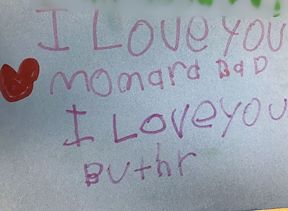 I Love you
momard Dad
I Loveyou
Buthr